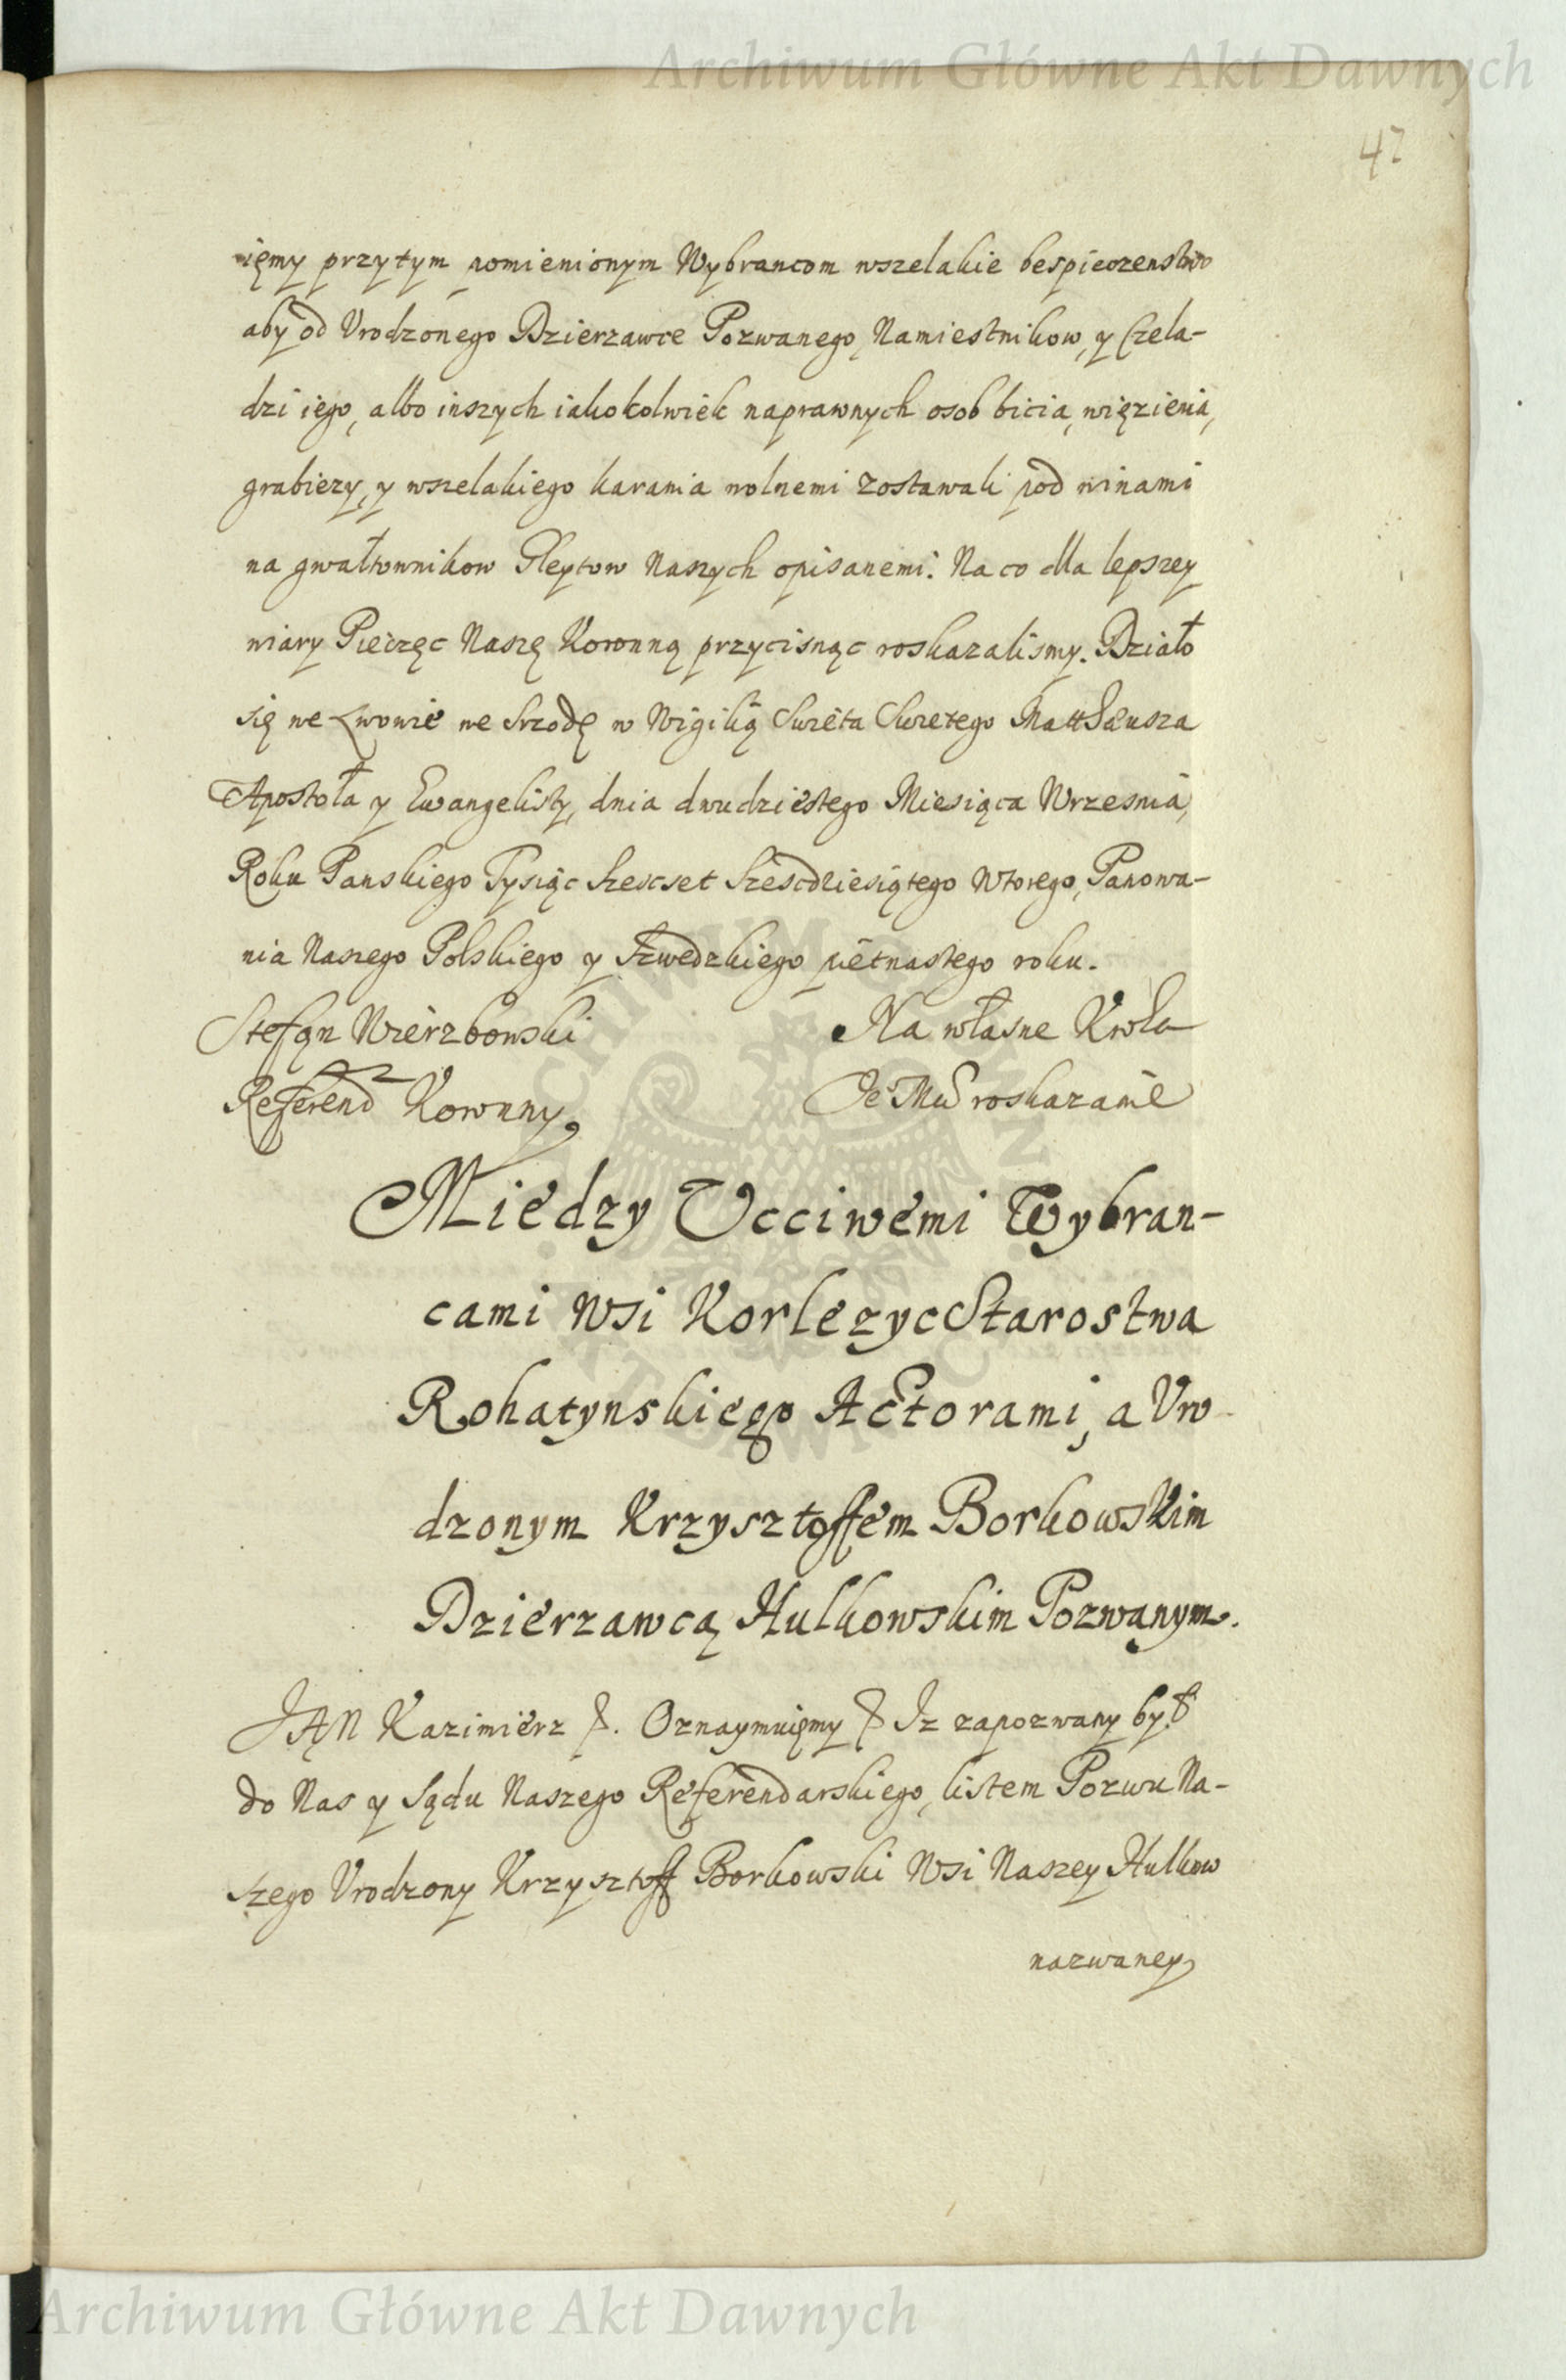 Archiwum Główne Akt Dawnych
47
ięmy przytym pomienionym Wybrancom wszelakie bespieczenstwo
aby od Vrodzonego Dzierzawce Pozwanego, Namiestnikow, y Czela-
dzi iego, albo inszych iakokolwiek naprawnych osob bicia, więzienia,
grabiezy, y wszelakiego karania wolnemi zostawali pod winami
na gwałtownikow Gleytow Naszych opisanemi. Na co dla lepszey
wiary Pieczęc Naszę Koronną przycisnąc roskazalismy. Działo
się we Lwowie we Srzodę w Wigilią Swięta Swiętego Matthæusza
Apostoła y Ewangelisty, dnia dwudziestego Miesiąca Wrzesnia,
Roku Panskiego Tysiąc Szescset Szescdziesiątego Wtorego, Panowa-
nia Naszego Polskiego y Szwedzkiego piętnastego roku.
Stefan Wierzbowski Na własne Krola
Referend Koronny, Je Mci roskazanie
Miedzy Vcciwemi Wybran-
cami Wsi Korlezyc Starostwa
Rohatynskiego Actorami, a Vro-
dzonym Krzysztoffem Borkowskim
Dzierzawcą Hulkowskim Pozwanym.
JAN Kazimierz &. Oznaymuięmy & Iz zapozwany był
do Nas y Sądu Naszego Referendarskiego, listem Pozwu Na-
szego Vrodzony Krzysztoff Borkowski Wsi Naszey Hulkow
nazwaney
Archiwum Główne Akt Dawnych